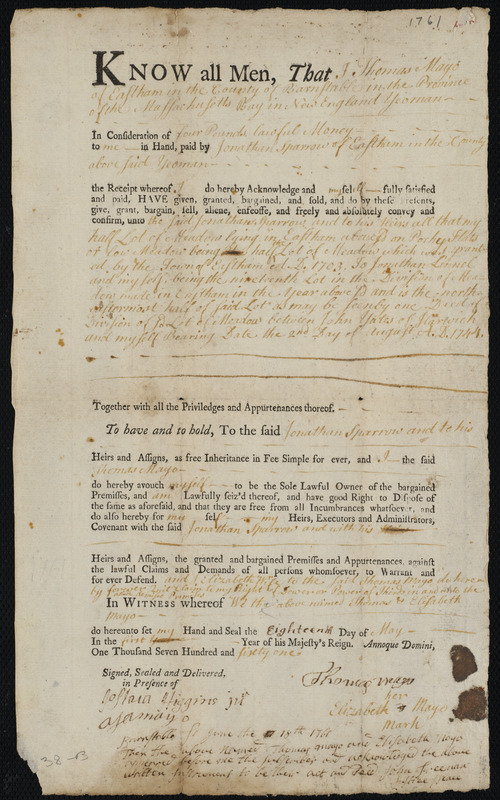 1761
KNOW all Men, That I Thomas Mayo
of Eastham in the County of Barnstable in the Province
of the Massachusetts Bay in New England Yeoman
In Consideration of four Pounds lawful Money
to me in Hand, paid by Jonathan Sparrow of Eastham in the County
above said Yeoman
the Receipt whereof I do hereby Acknowledge and my self fully satisfied
and paid, HAVE given, granted, bargained, and sold, and do by these Presents,
give, grant, bargain, sell, aliene, enfeoffe, and freely and absolutely convey and
confirm, unto the said Jonathan Sparrow and to his heirs all that my
half Lot of Meadow lying in Eastham
of Meadow being half Lot of Meadow which was grant-
ed by the Town of Eastham A.D. 1703. To Jonathan Linnel
and my self being the nineteenth Lot in the Division of Mea
dow made in Eastham in the Year above sd and is the north
eastermost half of said Lot as may be seen by one Deed of
Division of sd Lot of Meadow between John Yates of Harwich
and my self Bearing Date the 2nd Day of August A.D. 1744.
Together with all the Priviledges and Appurtenances thereof.
To have and to hold, To the said Jonathan Sparrow and to his
Heirs and Assigns, as free Inheritance in Fee Simple for ever, and I the said
Thomas Mayo
do hereby avouch my self to be the Sole Lawful Owner of the bargained
Premisses, and am Lawfully seiz'd thereof, and have good Right to Dispose of
the same as aforesaid, and that they are free from all Incumbrances whatsoever, and
do also hereby for my self my Heirs, Executors and Administrators,
Covenant with the said Jonathan Sparrow and with his
Heirs and Assigns, the granted and bargained Premisses and Appurtenances, against
the lawful Claims and Demands of all persons whomsoever, to Warrant and
for ever Defend. and I Elizabeth Wife to the said Thomas Mayo do here
by forever Quit Claim to my Right of Dower or Power of Thirds in and unto the
In WITNESS whereof We the above named Thomas & Elisabeth
Mayo
do hereunto set my Hand and Seal the Eighteenth Day of May
In the first Year of his Majesty's Reign. Annoque Domini,
One Thousand Seven Hundred and sixty one
Signed, Sealed and Delivered,
in Presence of
Thomas Mayo
Higgins
Asa mayo
her
Elizabeth Mayo
Mark
Barnstable Ss June the 18th 1761
Then the above Named Thomas mayo and Elisabeth Mayo
before me the Subscriber and acknowledged the above
written Instrument to be their act and Deed John Freeman
Justice Peace
38-B